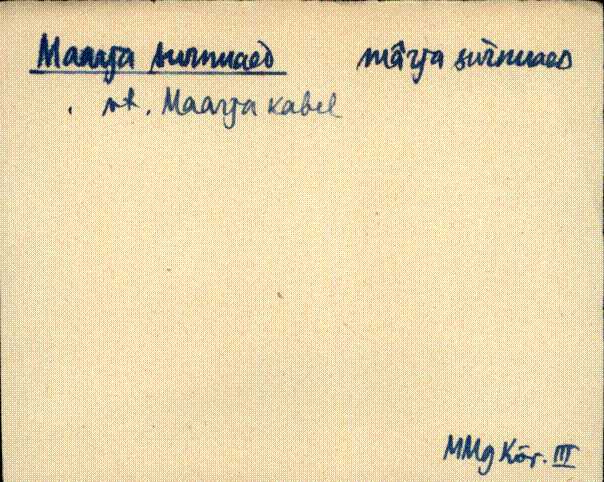 Maarja surnuaed mārja surnuaed
. vt. Maarja kabel
MMg Kör. III